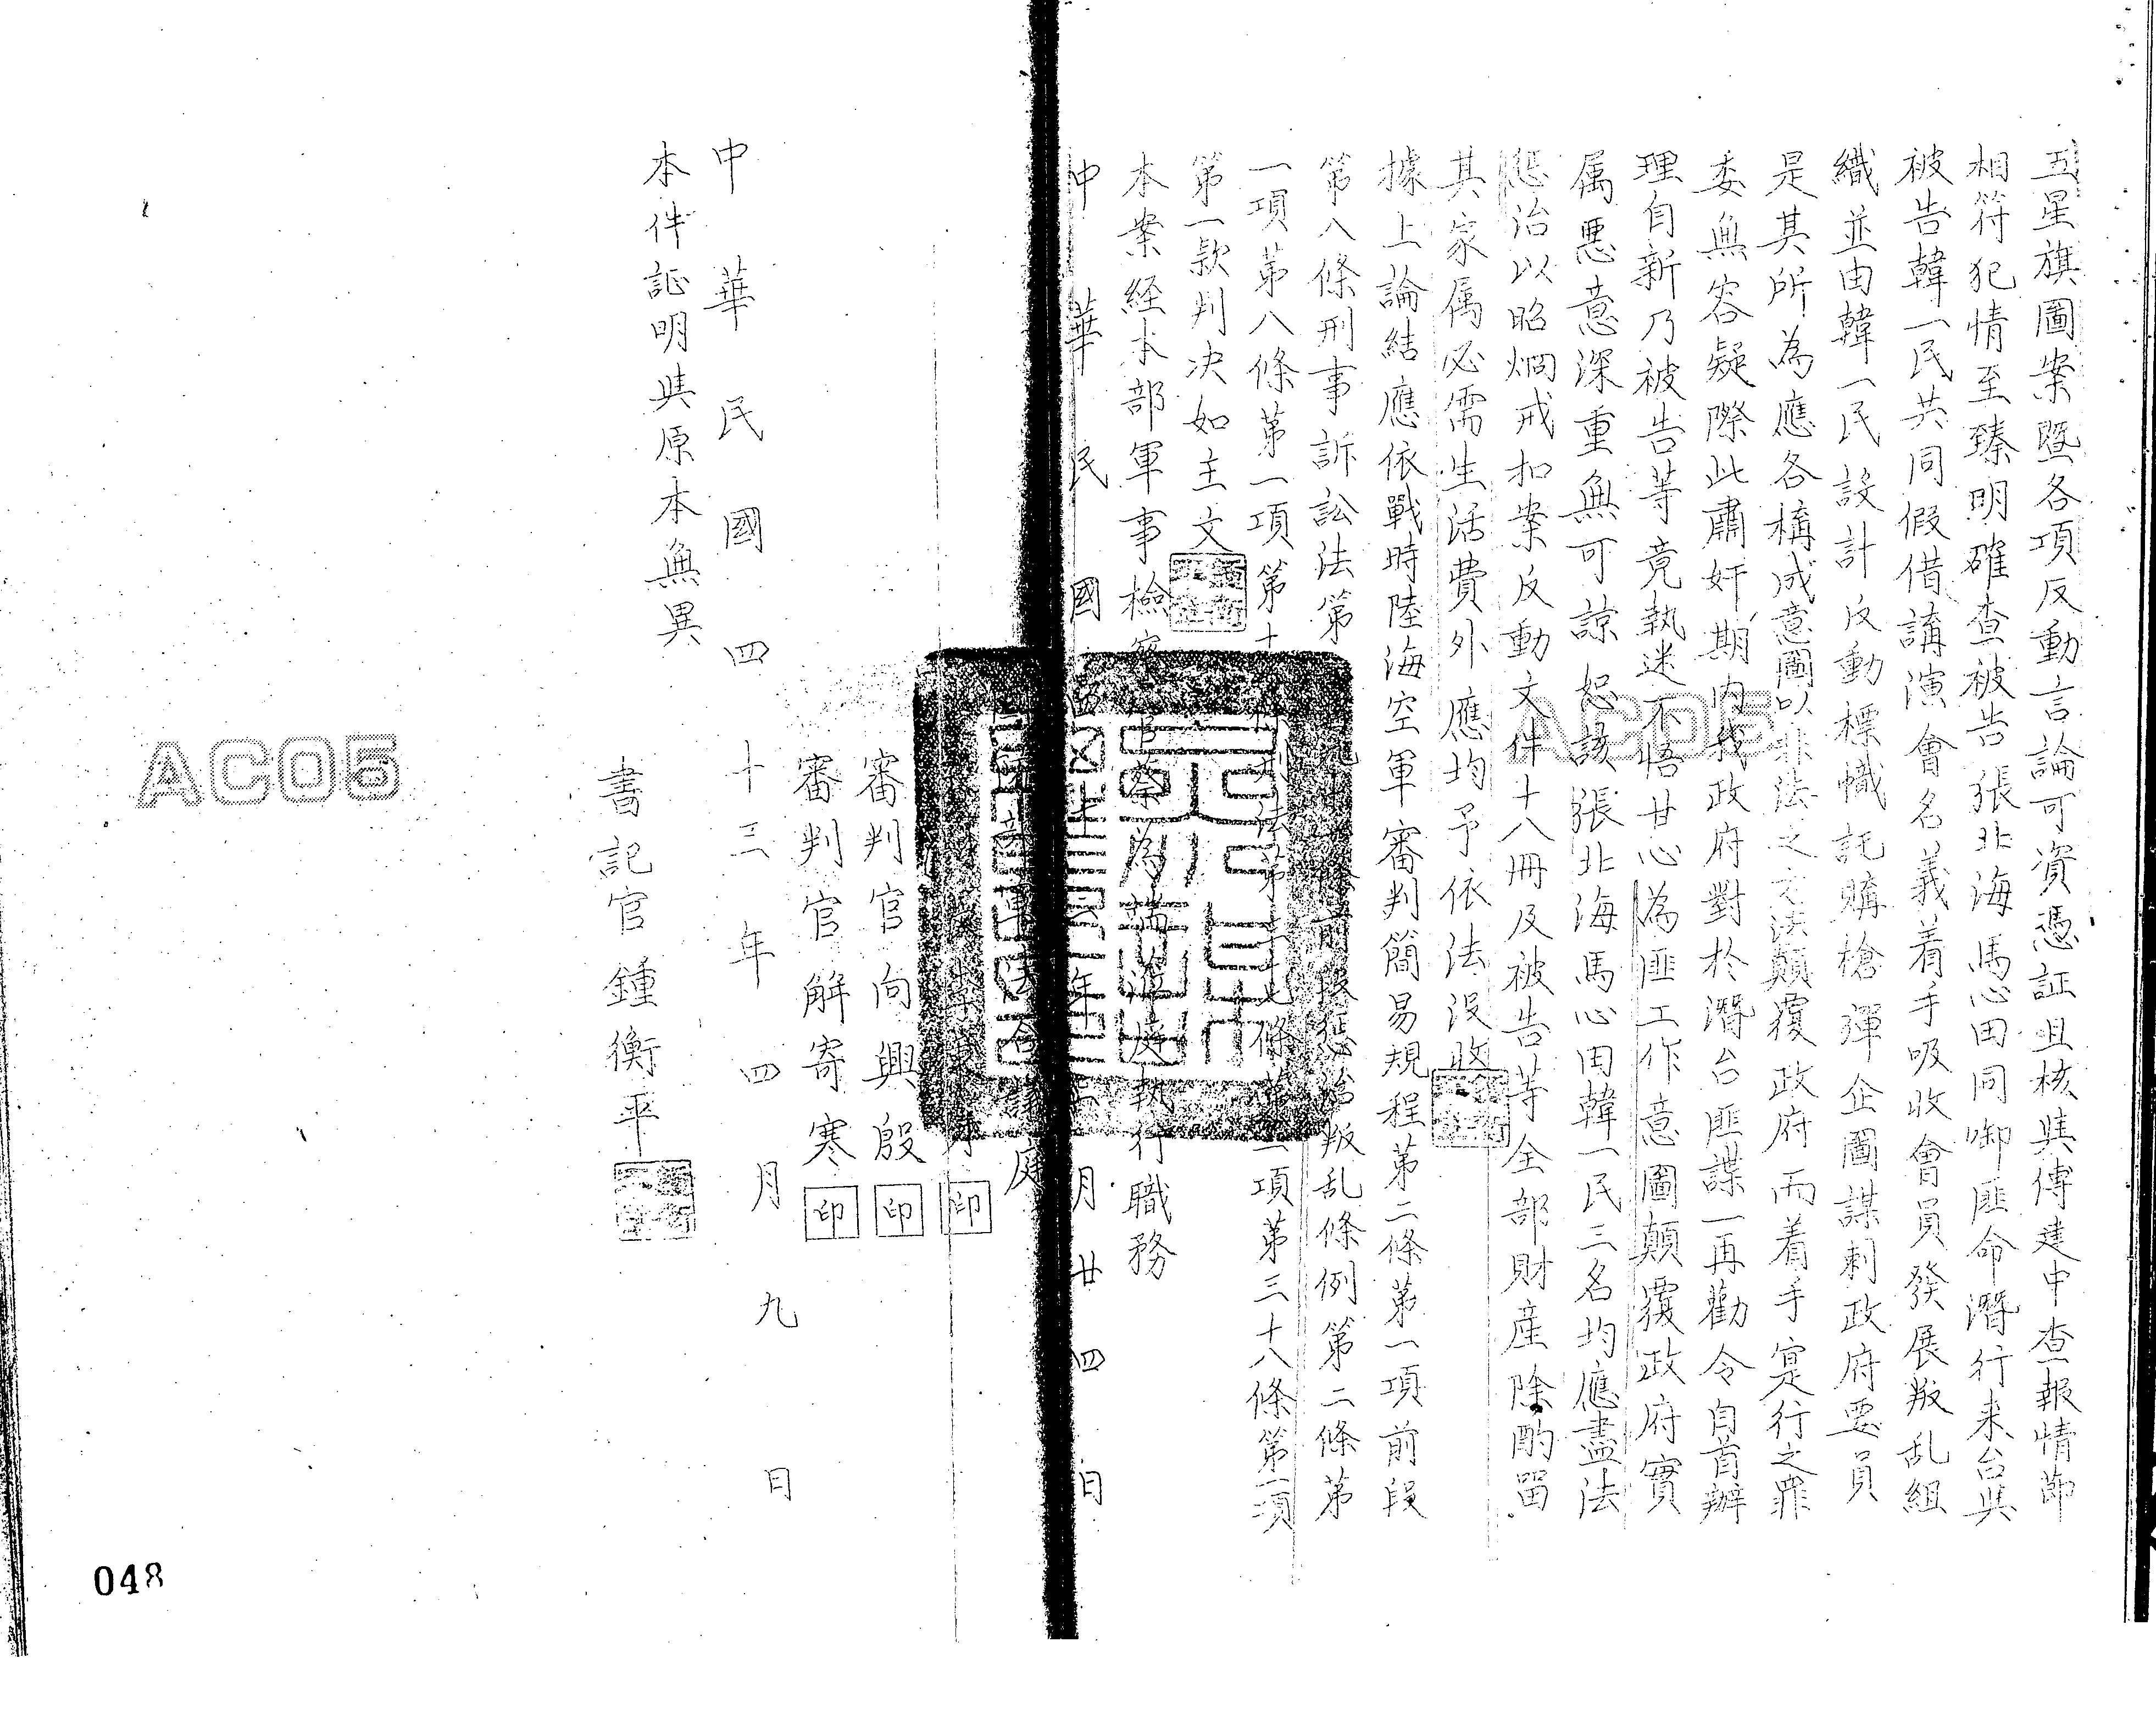 五星旗圖案暨各項反動言論可資憑証且核與傅建中查報情節
相符犯情至臻明確查被告張北海馬心田同啣匪命潛行来台與
被告韓一民共同假借講演會名義着手吸收會員發展叛乱組
織並由韓一民設計反動標幟託購槍彈企圖謀刺政府要員
是其所為應各構成意圖以非法之方法顛覆政府而着手寔行之罪
委無容疑際此肅奸期內我政府對於潛台匪諜一再勸令自首辦
理自新乃被告等竟執迷不悟甘心為匪工作意圖顛覆政府實
属惡意深重無可諒恕該張北海馬心田韓一民三名均應盡法
懲治以昭炯戒扣案反動文件十八冊及被告等全部財產除酌留
其家属必需生活費外應均予依法没收
據上論結應依戰時陸海空軍審判簡易規程第二條第一項前段
第八條刑事訴訟法第 條前段懲治叛乱條例第二條第
一項第八條第一項第十 條刑法第三十七條第 項第三十八條第一項
第一款判決如主文
本案經本部軍事檢察官蔡為瑞蒞庭執行職務
中華民國四十 年 月廿四日
軍法合議庭
審判官向興殷 印
審判官解寄寒 印
中華民國四十三年四月九日
本件証明與原本無異
書記官鍾衡平
AC05
AC05
048